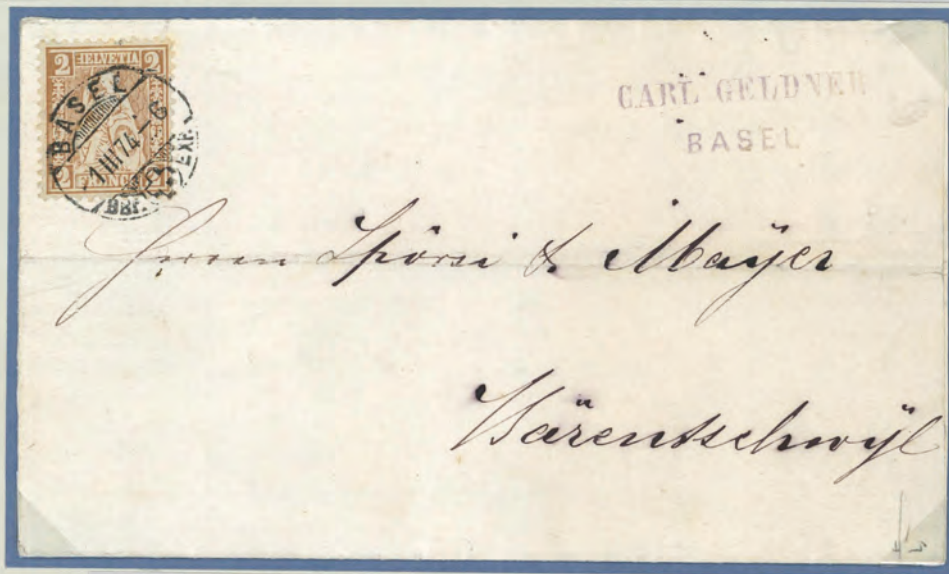 2 HELVETIA 2
2 FRANCO 2
BASEL
1 III 74 - 6
BRF. EXP.
CARL GELDNER
BASEL
Herren Spörri & Mayer
Bärentschwyl